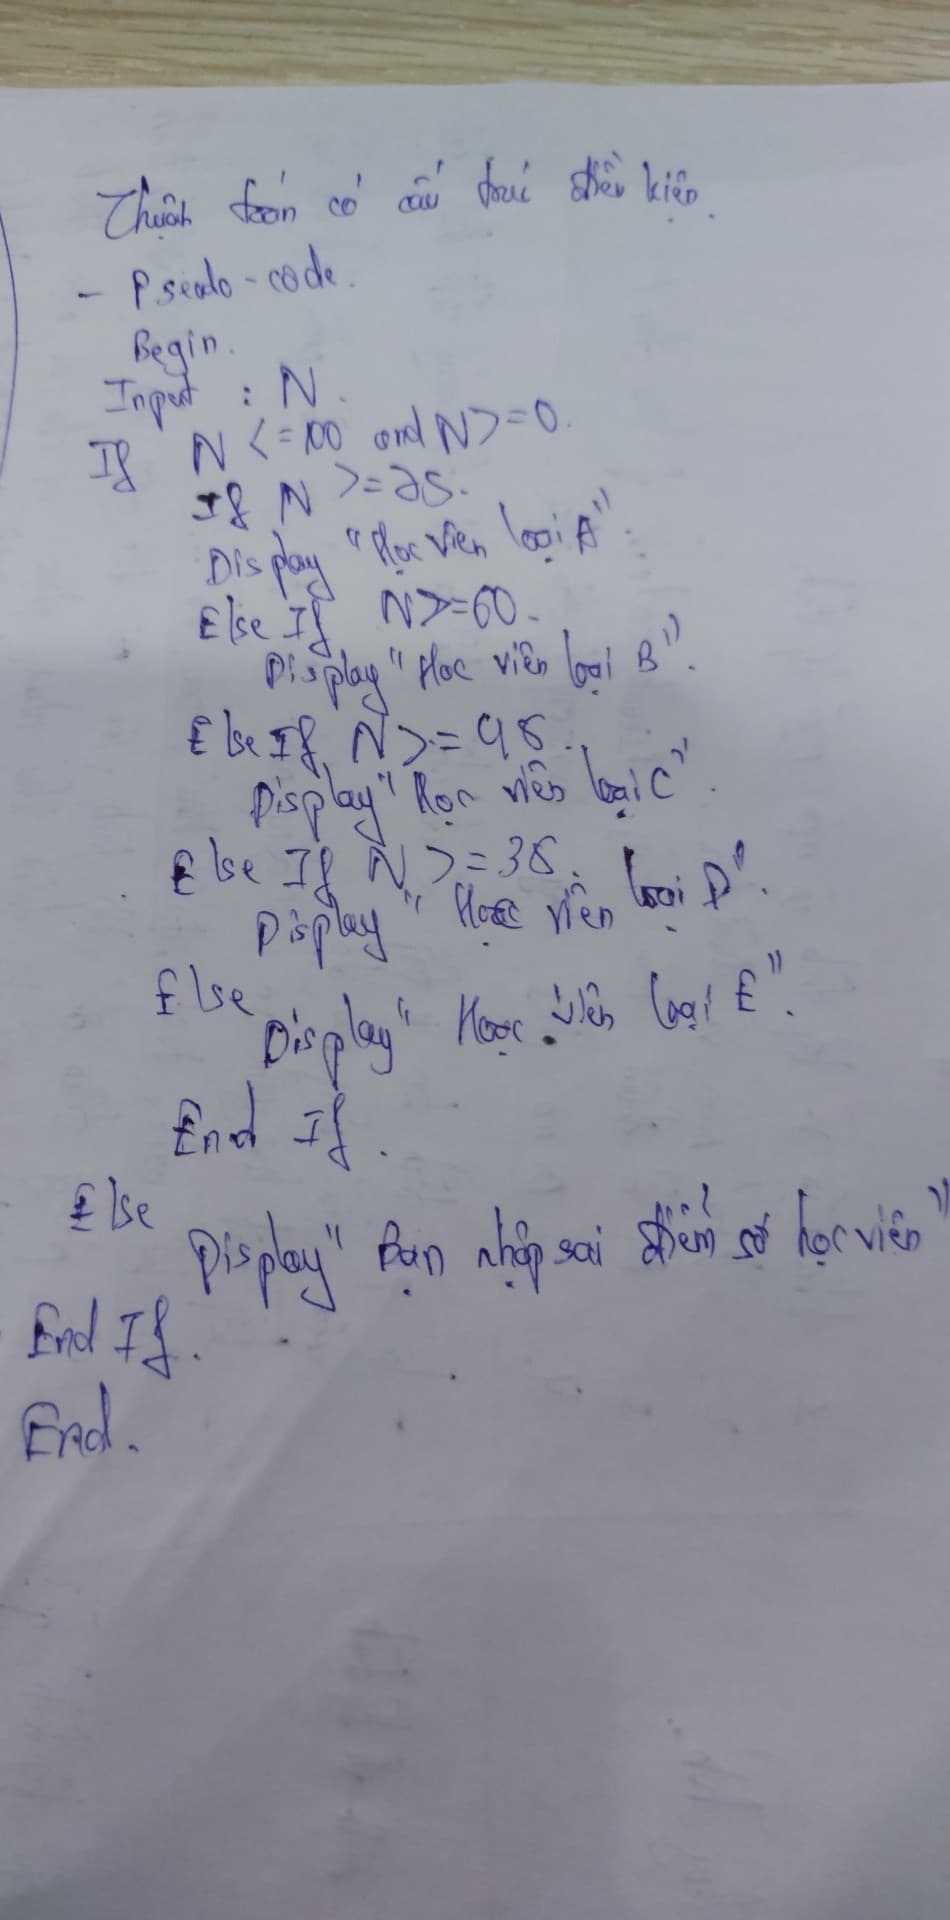 Thuật toán có cấu trúc điều kiện.
- Pseudo-code.
Begin.
Input : N.
If N <= 100 and N >= 0.
If N >= 75.
Display "Học viên loại A".
Else If N >= 60.
Display "Học viên loại B".
Else If N >= 45.
Display "Học viên loại C".
Else If N >= 35.
Display "Học viên loại D".
Else
Display "Học viên loại E".
End If.
Else
Display "Bạn nhập sai điểm số học viên"
End If.
End.